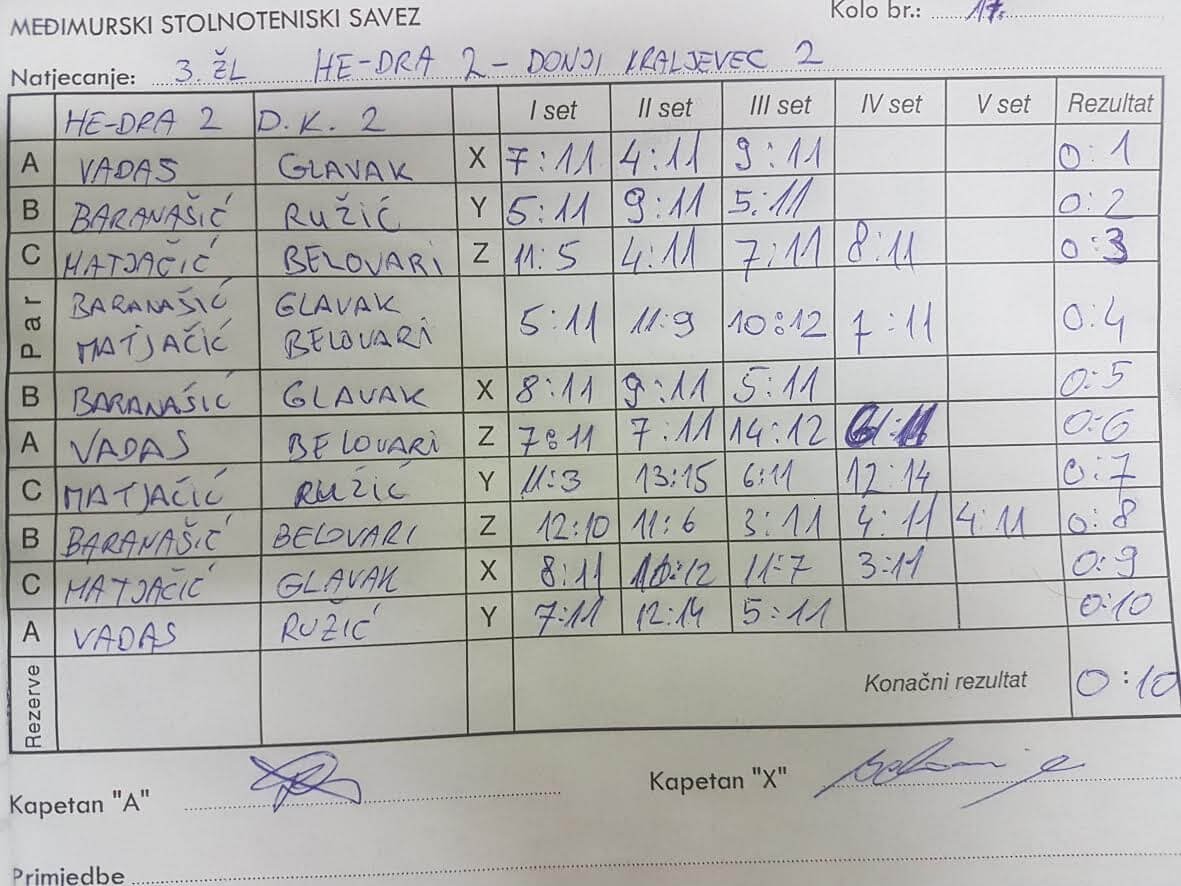 MEĐIMURSKI STOLNOTENISKI SAVEZ
Kolo br.: 17.
Natjecanje: 3. ŽL HE-DRA 2 - DONJI KRALJEVEC 2
HE-DRA 2 D.K. 2 I set II set III set IV set V set Rezultat
A VADAS GLAVAK X 7:11 4:11 9:11 0:1
B BARANAŠIĆ RUŽIĆ Y 5:11 9:11 5:11 0:2
C MATJAČIĆ BELOVARI Z 11:5 4:11 7:11 8:11 0:3
Par BARANAŠIĆ GLAVAK
MATJAČIĆ BELOVARI 5:11 11:9 10:12 7:11 0:4
B BARANAŠIĆ GLAVAK X 8:11 9:11 5:11 0:5
A VADAS BELOVARI Z 7:11 7:11 14:12 0:6
C MATJAČIĆ RUŽIĆ Y 11:3 13:15 6:11 12:14 0:7
B BARANAŠIĆ BELOVARI Z 12:10 11:6 3:11 4:11 4:11 0:8
C MATJAČIĆ GLAVAK X 8:11 10:12 11:7 3:11 0:9
A VADAS RUŽIĆ Y 7:11 12:14 5:11 0:10
Rezerve Konačni rezultat 0:10
Kapetan "A" Kapetan "X"
Primjedbe